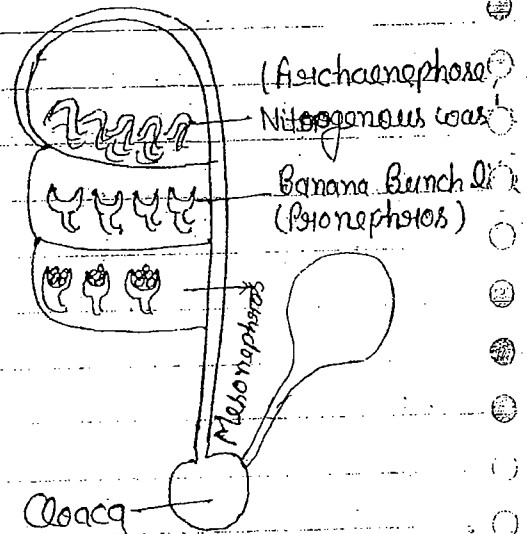 (Archaenephose
Nitrogenous was
Banana Bunch li
(Pronephros)
Mesonephros
Cloaca